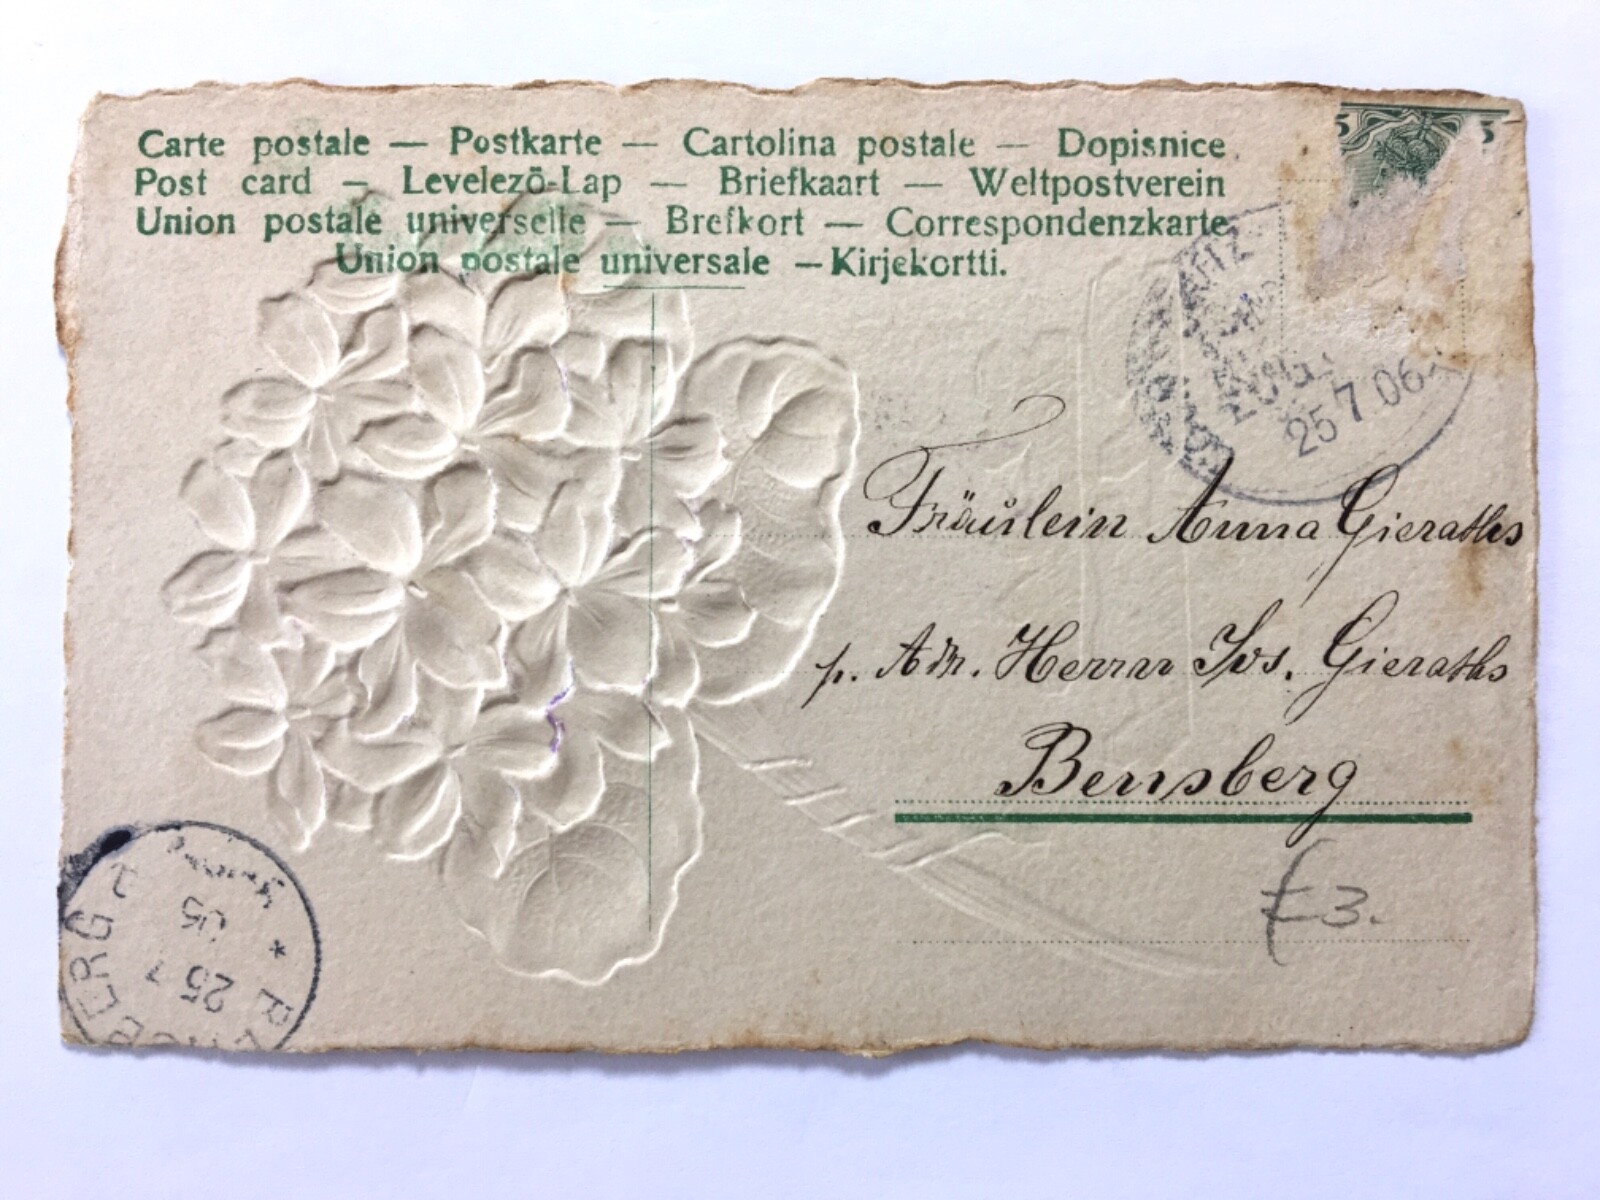 Carte postale — Postkarte — Cartolina postale — Dopisnice
Post card — Levelező-Lap — Briefkaart — Weltpostverein
Union postale universelle — Brefkort — Correspondenzkarte
Union postale universale — Kirjekortti.
5 5
25 7 06
Fräulein Anna Gieraths
p. Adr. Herrn Jos. Gieraths
Bensberg
£3.
BENSBERG
25 7